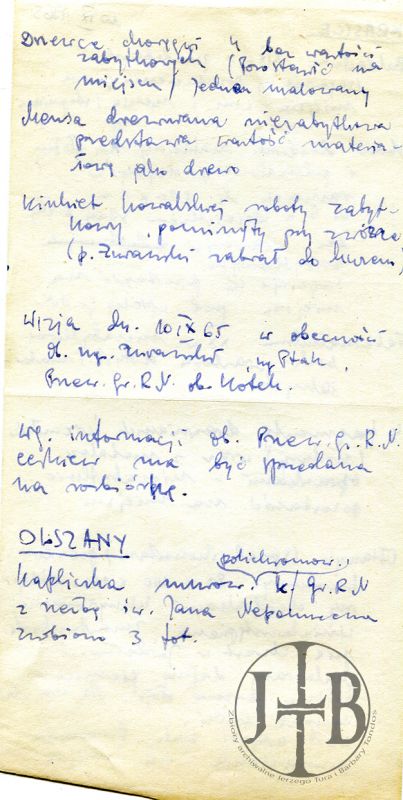 Drzewce chorągwi 4 bez wartości
zabytkowych (Pozostawić na
miejscu) jeden malowany
Mensa drewniana niezabytkowa
przedstawia wartość materia-
łową jako drewo
Kinkiet kowalskiej roboty zabyt-
kowy, pominięty przy zwózce
(p. Zwaarski zabrał do Muzeum)
Wizja dn. 10 IX 65 w obecności
Ob. mgr. , mgr Ptak,
Przew. Gr. R.N. ob. Kotek.
wg. informacji ob. Przew. Gr. R.N.
cerkiew ma być sprzedana
na rozbiórkę.
OLSZANY
polichromow.
Kapliczka murow. k/ Gr. R.N
z rzeźbą św. Jana Nepomucena
zrobiono 3 fot.
JTB
Zbiory archiwalne Jerzego Tura i Barbary Tondos